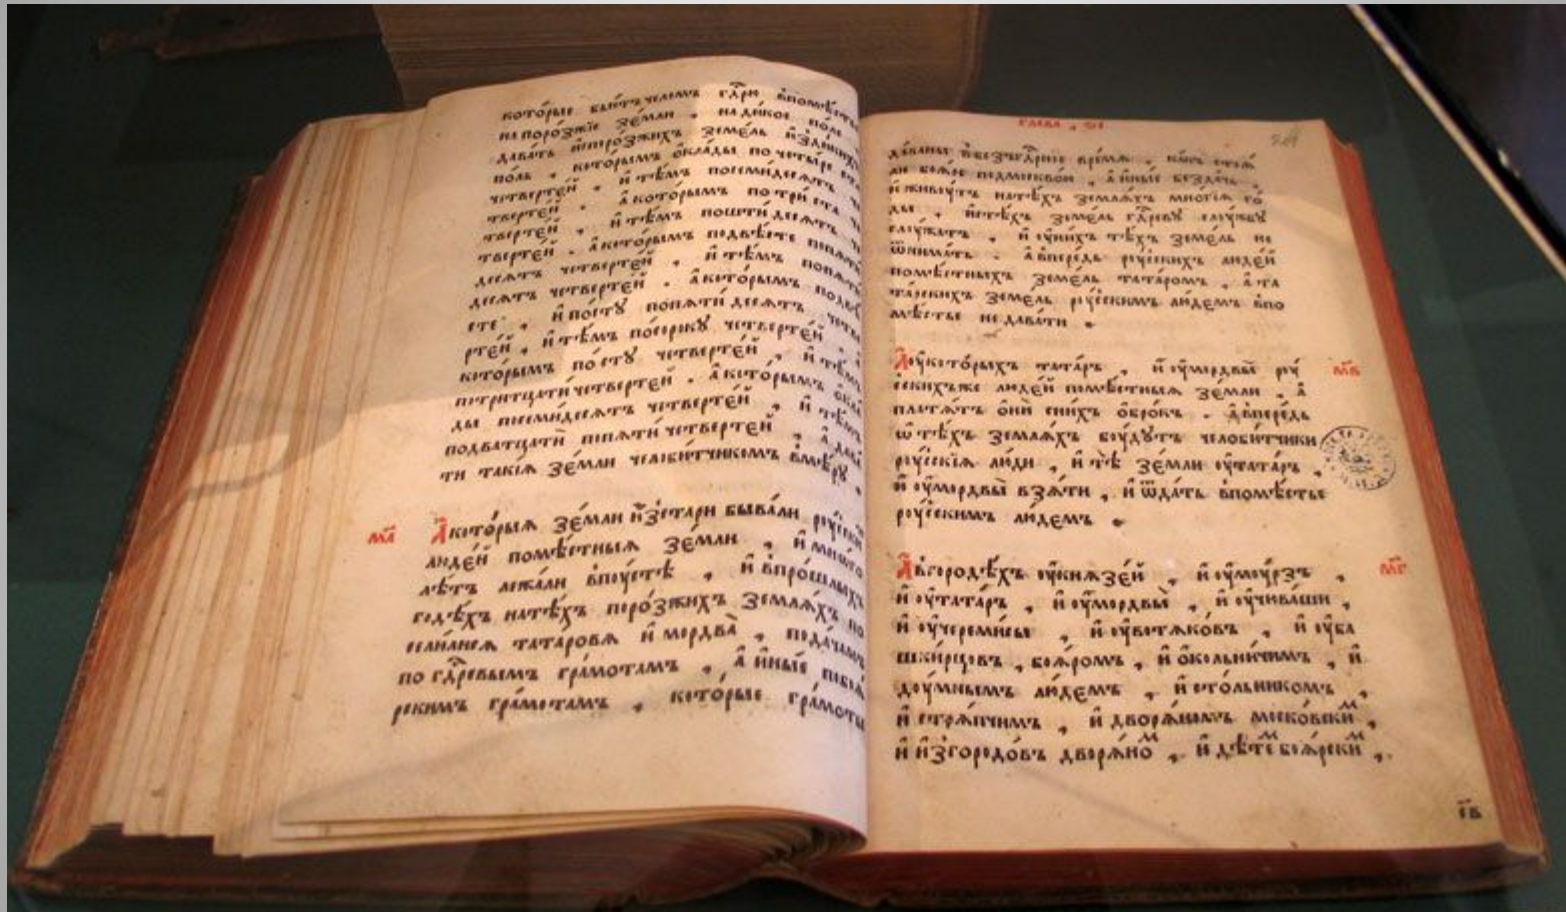 кото́рые бью́тъ челомъ гдⷭ҇рю впомѣ́стье
на поро́зжїе зе́мли , на ди́кое по́ле
дава́ть и҆споро́зжихъ земе́ль и҆здикихъ
по́ль , кото́рымъ ѻ҆кла́ды по четы́ре ста
че́твертей , и҆ тѣ́мъ посемидеся́тъ
твертей . а҆ кото́рымъ по три́ ста че
твертей , и҆ тѣ́мъ пошти́деся́тъ че
твертей . а҆ кото́рымъ подвѣ́сте попяти
деся́тъ четвертей , и҆ тѣ́мъ попяти
деся́тъ четвертей . а҆ кото́рымъ подвѣ
сте , и҆ по́стꙋ попяти деся́тъ четве
ртей , и҆ тѣ́мъ по́сорокꙋ четвертей , а҆
кото́рымъ по́ стꙋ четвертей , и҆ тѣ́мъ
потритцати четвертей . а҆ кото́рымъ ѻ҆кла
ды посемидеся́тъ четвертей , и҆ тѣ́мъ
подватцати попяти четвертей , а҆ дава
ти такі́я зе́мли челоби́тчикомъ вмѣ́рꙋ .
м҃а
А҆ кото́рыя зе́мли и҆зстари быва́ли рꙋ́сскихъ
люде́й помѣ́стныя зе́мли , и҆ мно́гѡ
лѣ́тъ лежа́ли впꙋ́стѣ , и҆ впро́шлыхъ
годѣ́хъ натѣ́хъ поро́зжихъ земля́хъ по
сели́лися тата́ровя и҆ мордва̀ , пода́чамъ
по гдⷭ҇ревымъ гра́мотамъ , а҆ и҆ны́е побоя́
рскимъ гра́мотамъ , кото́рые гра́моты
ГЛАВА , ѕ҃і
да́ваны вбезъгдⷭ҇рное вре́мя , ка́къ стоя́
ли боя́ре подмоскво́ю , а҆ и҆ны́е безда́чь ,
и҆ живꙋ́тъ натѣ́хъ земля́хъ мно́гїя го́
ды , и҆ стѣ́хъ земе́ль гдⷭ҇ревꙋ слꙋ́жбꙋ
слꙋ́жатъ , и҆ оу҆ни́хъ тѣ́хъ земе́ль не
ѿнима́ть . а҆ впере́дь рꙋ́сскихъ люде́й
помѣ́стныхъ земе́ль тата́ромъ , а҆ та
та́рскихъ земе́ль рꙋ́сскимъ лю́демъ впо
мѣ́стье не дава́ти .
А҆ оу҆кото́рыхъ тата́ръ , и҆ оу҆мордвы̀ рꙋ́
сскихъже люде́й помѣ́стныя зе́мли , а҆
пла́тятъ ѻ҆нѝ сни́хъ ѻ҆бро́къ . а҆ впере́дь
ѡ҆ тѣ́хъ земля́хъ бꙋ́дꙋтъ челоби́тчики
рꙋ́сскїя лю́ди , и҆ тѣ̀ зе́мли оу҆тата́ръ ,
и҆ оу҆мордвы̀ взя́ти , и҆ ѿда́ть впомѣ́стье
рꙋ́сскимъ лю́демъ .
м҃в
А҆ вгородѣ́хъ оу҆князе́й , и҆ оу҆мꙋ́рзъ ,
и҆ оу҆тата́ръ , и҆ оу҆мордвы̀ , и҆ оу҆чива́ши ,
и҆ оу҆черемисы , и҆ оу҆вотяко́въ , и҆ оу҆ба
шки́рцовъ , боя́ромъ , и҆ ѻ҆кольни́чимъ , и҆
дꙋ́мнымъ лю́демъ , и҆ сто́льникомъ ,
и҆ стря́пчимъ , и҆ дворя́номъ моско́вскиⷨ ,
и҆ и҆зъгородо́въ дворя́ноⷨ , и҆ дѣ́теⷨ боя́рскиⷨ ,
м҃г
с҃в